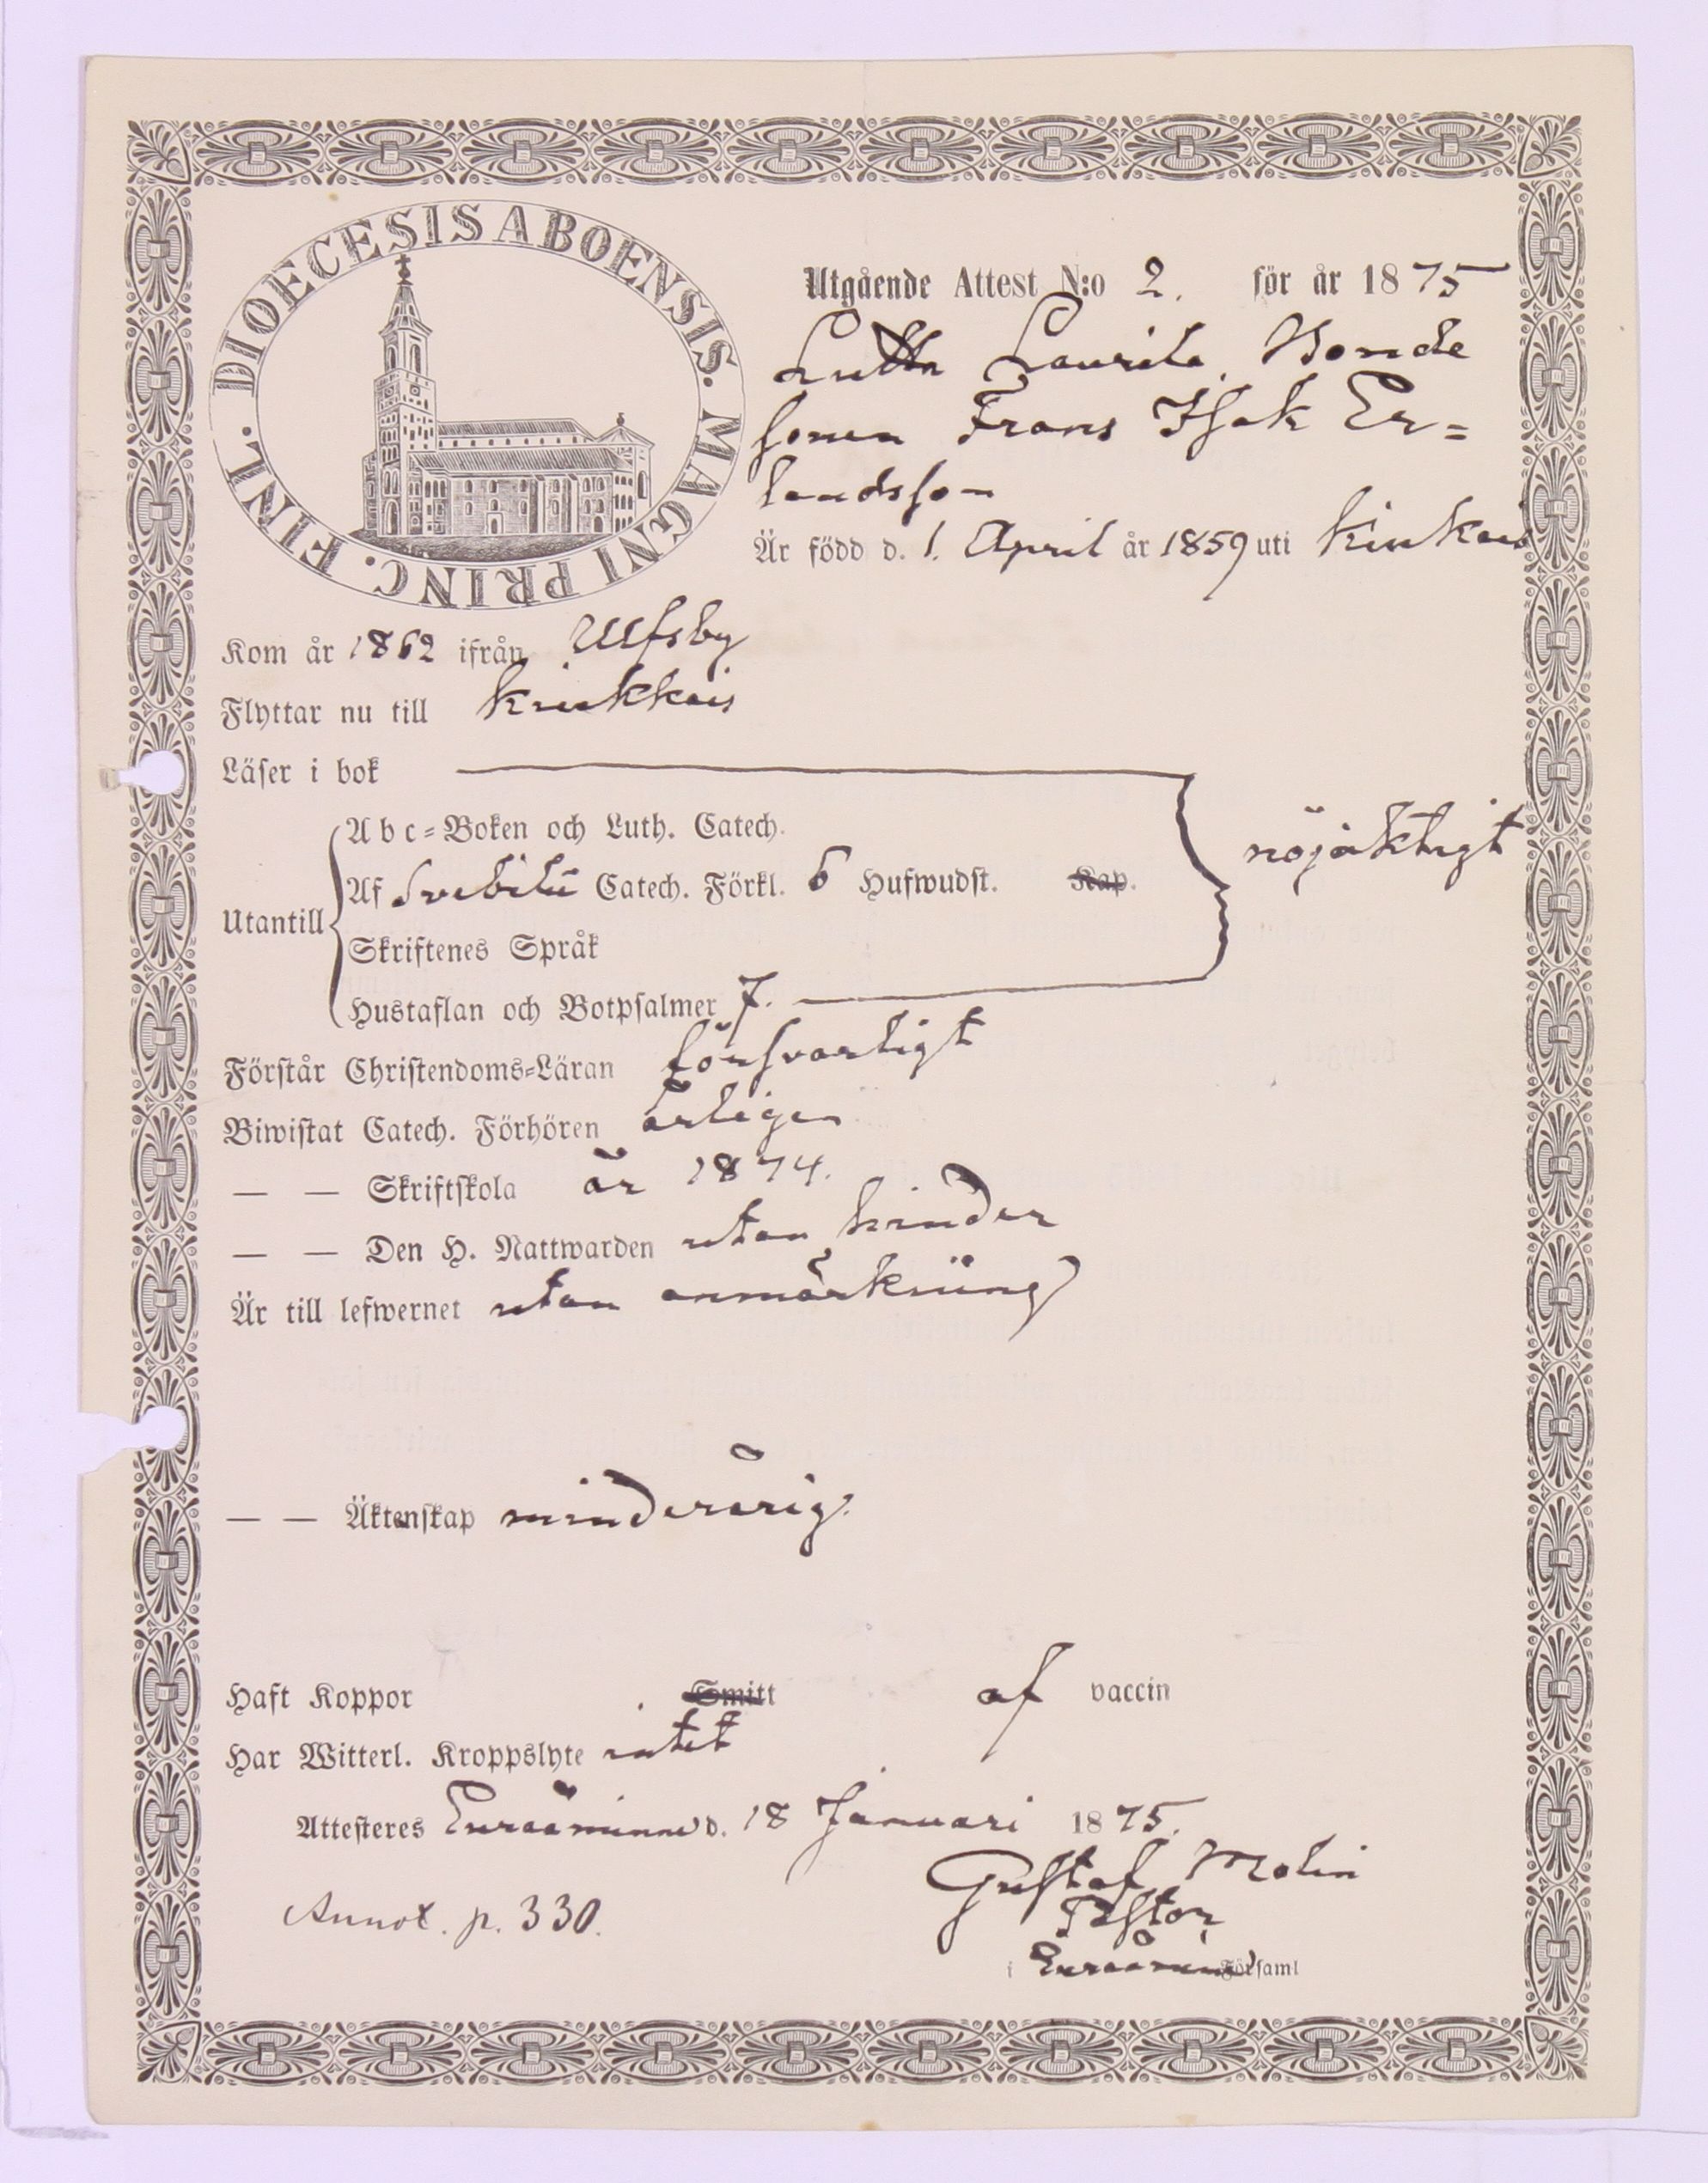 DIOECESIS ABOENSIS. MAGNI PRINC. FINL.
Utgående Attest N:o 2. för år 1875
Lutta Laurila Bonde
sonen Frans Isak Er=
landsson
Är född d. 1. April år 1859 uti Kiukais
Kom år 1862 ifrån Ulfsby
Flyttar nu till Kiukkais
Läser i bok
Abc=Boken och Luth. Catech.
nöjaktigt
Af Svebilii Catech. Förkl. 6 Hufwudst. Kap.
Utantill
Skriftenes Språk
Hustaflan och Botpsalmer 7.
Förstår Christendoms=Läran försvarligt
Biwistat Catech. Förhören årligen
— — Skriftskola år 1874.
— — Den H. Nattwarden utan hinder
Är till lefwernet utan anmärkning
— — Äktenskap minderårig.
Haft Koppor Smitt af vaccin
Har Witterl. Kroppslyte intet
Attesteres Euraåminne d. 18 Januari 1875.
Gustaf Molin
Annot. p. 330.
Pastor
i Euraåminne Församl